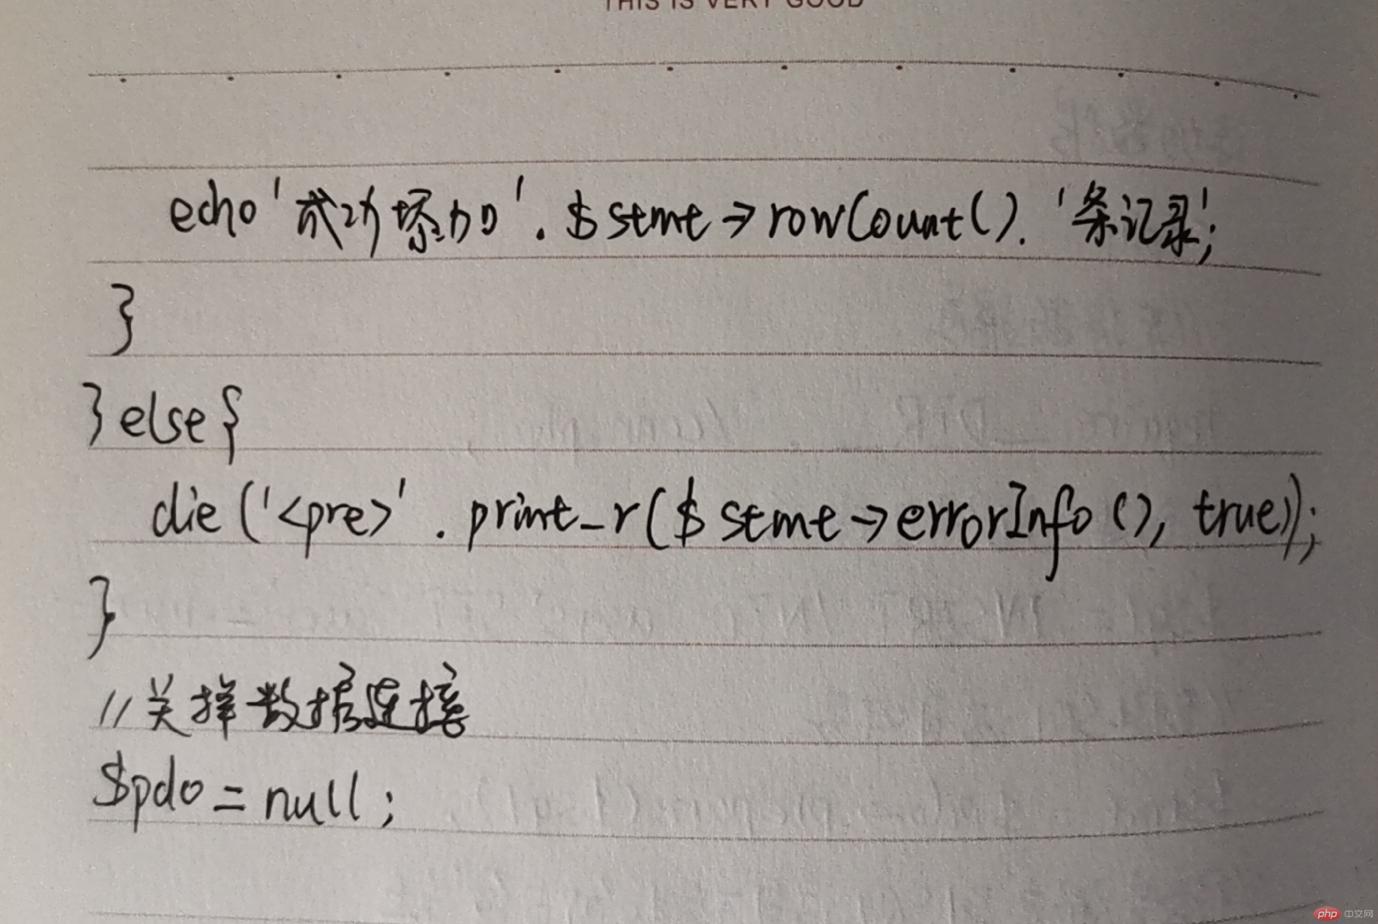 THIS IS VERY GOOD
echo '成功添加' . $stmt->rowCount(). '条记录';
}
}else{
die ('<pre>' . print_r($stmt->errorInfo(), true));
}
//关择数据连接
$pdo = null;
php 中文网